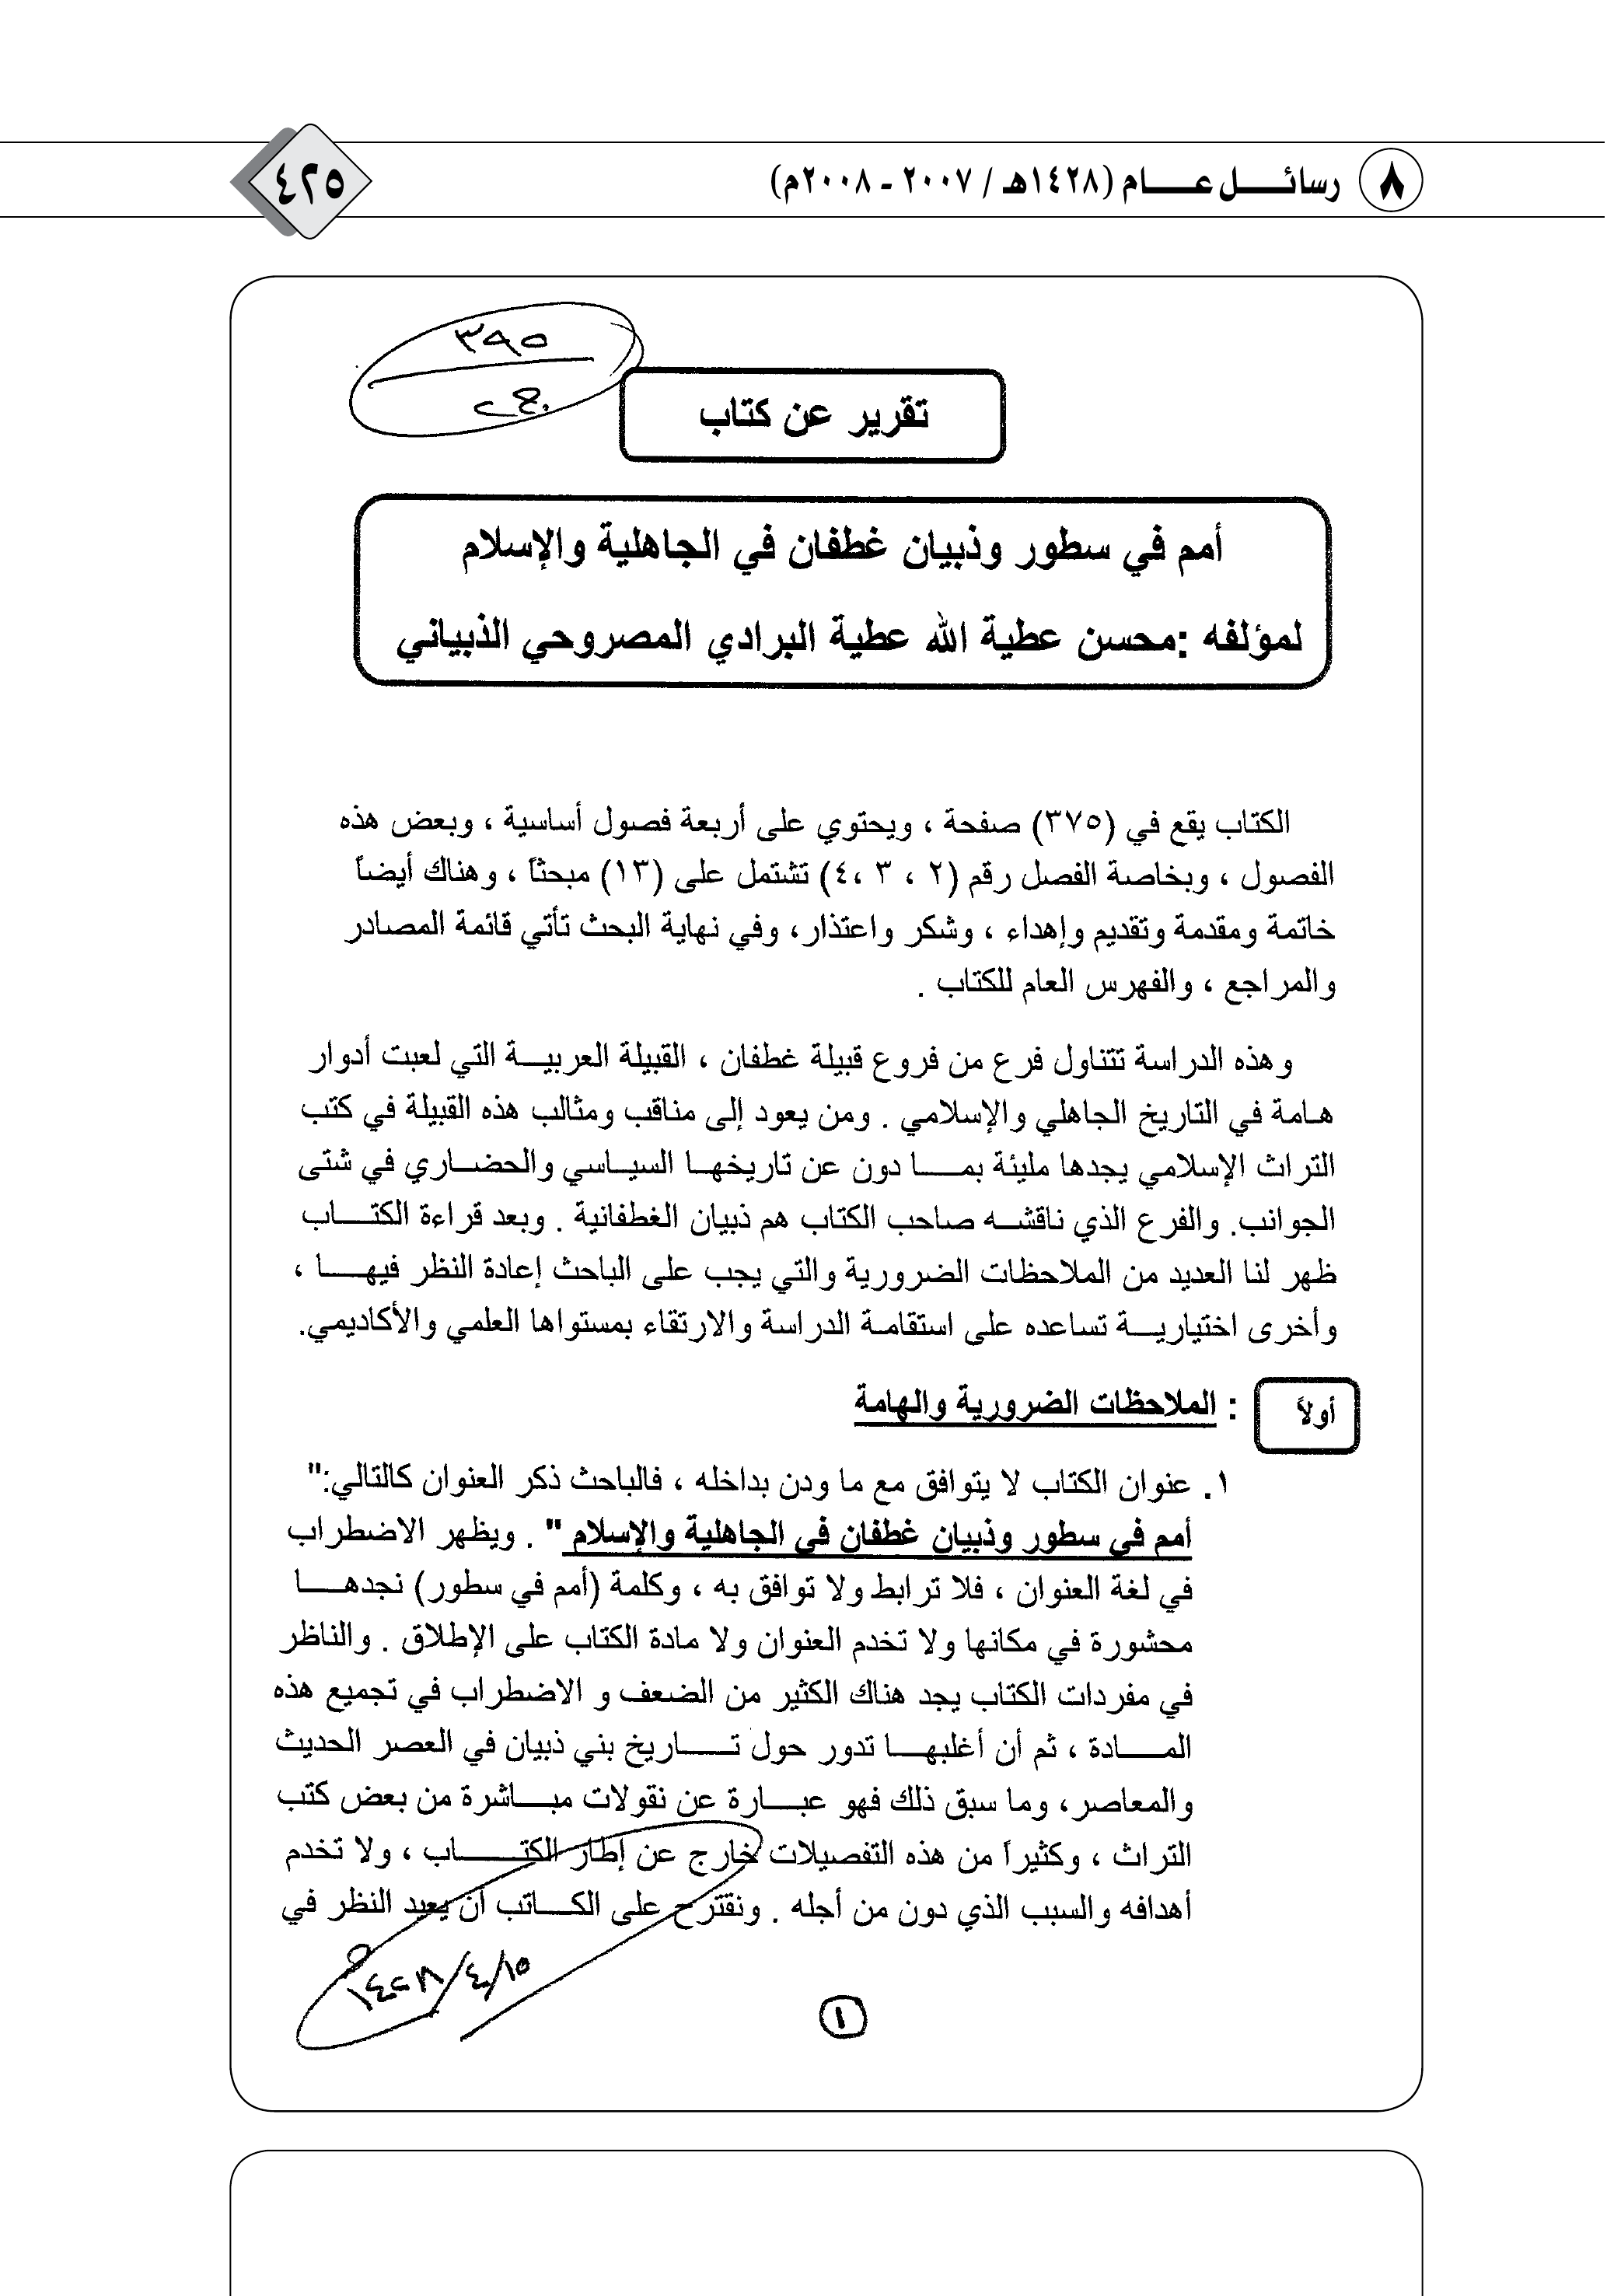 ٨ رسائل عام (١٤٢٨هـ / ٢٠٠٧ - ٢٠٠٨م)
٤٢٥
٣٩٥
تقرير عن كتاب
أمم في سطور وذبيان غطفان في الجاهلية والإسلام
لمؤلفه :محسن عطية الله عطية البرادي المصروحي الذبياني
الكتاب يقع في (٣٧٥) صفحة ، ويحتوي على أربعة فصول أساسية ، وبعض هذه
الفصول ، وبخاصة الفصل رقم (٢ ، ٣ ،٤) تشتمل على (١٣) مبحثاً ، وهناك أيضاً
خاتمة ومقدمة وتقديم وإهداء ، وشكر واعتذار، وفي نهاية البحث تأتي قائمة المصادر
والمراجع ، والفهرس العام للكتاب .
وهذه الدراسة تتناول فرع من فروع قبيلة غطفان ، القبيلة العربية التي لعبت أدوار
هامة في التاريخ الجاهلي والإسلامي . ومن يعود إلى مناقب ومثالب هذه القبيلة في كتب
التراث الإسلامي يجدها مليئة بما دون عن تاريخها السياسي والحضاري في شتى
الجوانب. والفرع الذي ناقشه صاحب الكتاب هم ذبيان الغطفانية . وبعد قراءة الكتاب
ظهر لنا العديد من الملاحظات الضرورية والتي يجب على الباحث إعادة النظر فيها ،
وأخرى اختيارية تساعده على استقامة الدراسة والارتقاء بمستواها العلمي والأكاديمي.
أولاً : الملاحظات الضرورية والهامة
١. عنوان الكتاب لا يتوافق مع ما ودن بداخله ، فالباحث ذكر العنوان كالتالي:"
أمم في سطور وذبيان غطفان في الجاهلية والإسلام " . ويظهر الاضطراب
في لغة العنوان ، فلا ترابط ولا توافق به ، وكلمة (أمم في سطور) نجدها
محشورة في مكانها ولا تخدم العنوان ولا مادة الكتاب على الإطلاق . والناظر
في مفردات الكتاب يجد هناك الكثير من الضعف و الاضطراب في تجميع هذه
المادة ، ثم أن أغلبها تدور حول تاريخ بني ذبيان في العصر الحديث
والمعاصر، وما سبق ذلك فهو عبارة عن نقولات مباشرة من بعض كتب
التراث ، وكثيراً من هذه التفصيلات خارج عن إطار الكتاب ، ولا تخدم
أهدافه والسبب الذي دون من أجله . ونقترح على الكاتب أن يعيد النظر في
١٤٢٨/٤/١٥
١